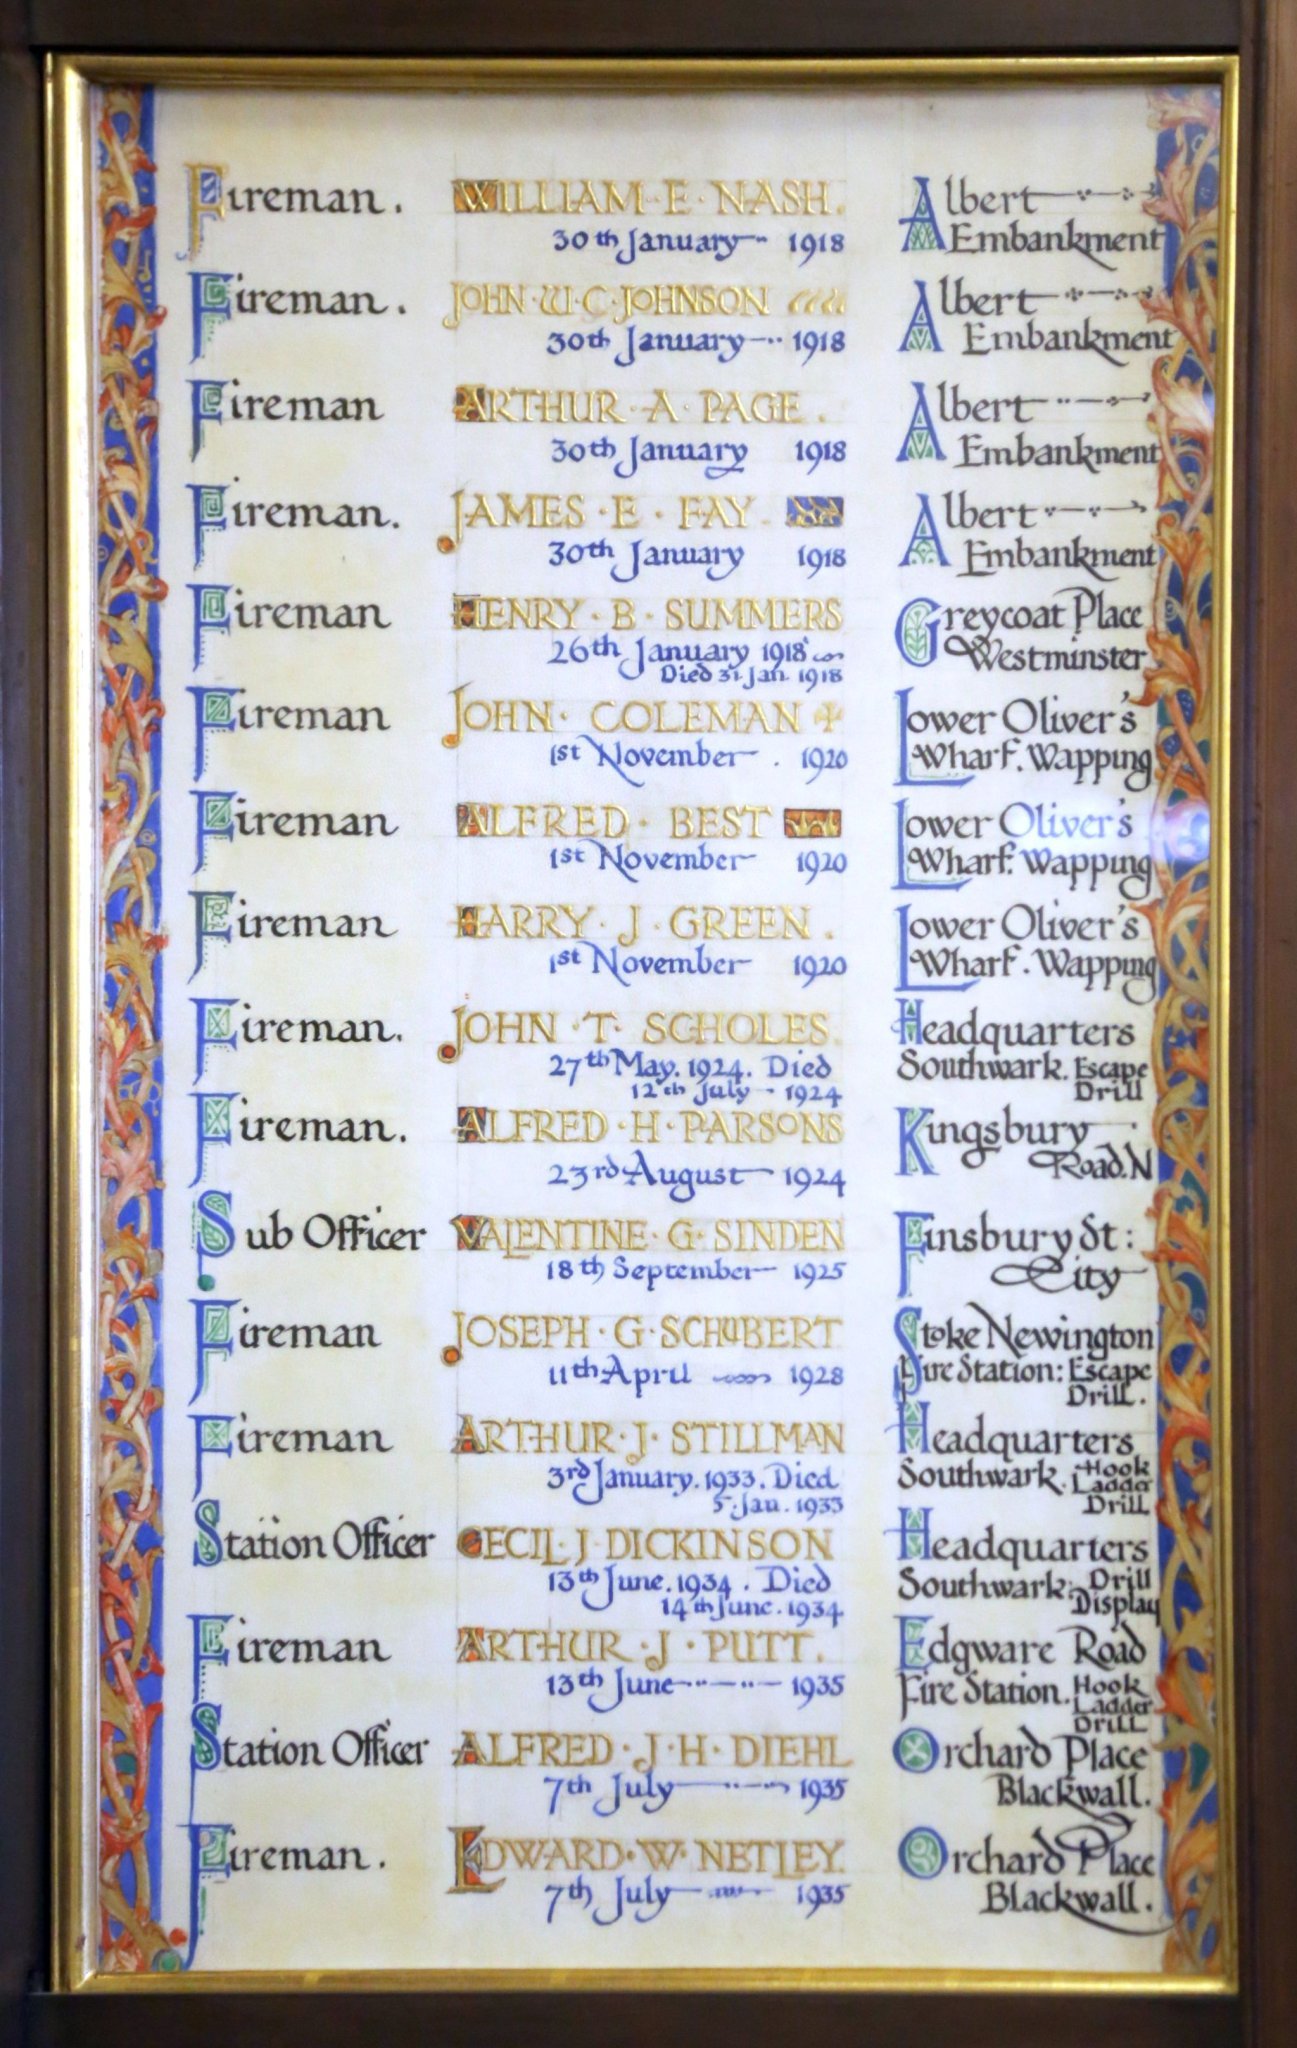 Fireman. WILLIAM·E·NASH. Albert
30th January 1918 Embankment
Fireman. JOHN·W·C·JOHNSON Albert
30th January 1918 Embankment
Fireman ARTHUR·A·PAGE. Albert
30th January 1918 Embankment
Fireman. JAMES·E·FAY. Albert
30th January 1918 Embankment
Fireman HENRY·B·SUMMERS Greycoat Place
26th January 1918 Westminster
Died 31 Jan. 1918
Fireman JOHN·COLEMAN Lower Oliver's
1st November. 1920 Wharf. Wapping
Fireman ALFRED·BEST Lower Oliver's
1st November 1920 Wharf. Wapping
Fireman HARRY·J·GREEN. Lower Oliver's
1st November 1920 Wharf. Wapping
Fireman. JOHN·T·SCHOLES. Headquarters
27th May. 1924. Died Southwark. Escape
12th July 1924 Drill
Fireman. ALFRED·H·PARSONS Kingsbury
23rd August 1924 Road. N
Sub Officer VALENTINE·G·SINDEN Finsbury St:
18th September 1925 City
Fireman JOSEPH·G·SCHUBERT Stoke Newington
11th April 1928 Fire Station: Escape
Drill.
Fireman ARTHUR·J·STILLMAN Headquarters
3rd January. 1933. Died Southwark. Hook
Ladder
5. Jan. 1933 Drill
Station Officer CECIL·J·DICKINSON Headquarters
13th June. 1934. Died Southwark: Drill
14th June. 1934 Display
Fireman ARTHUR·J·PUTT. Edgware Road
13th June 1935 Fire Station. Hook
Ladder
Drill
Station Officer ALFRED·J·H·DIEHL Orchard Place
7th July 1935 Blackwall.
Fireman. EDWARD·W·NETLEY. Orchard Place
7th July 1935 Blackwall.